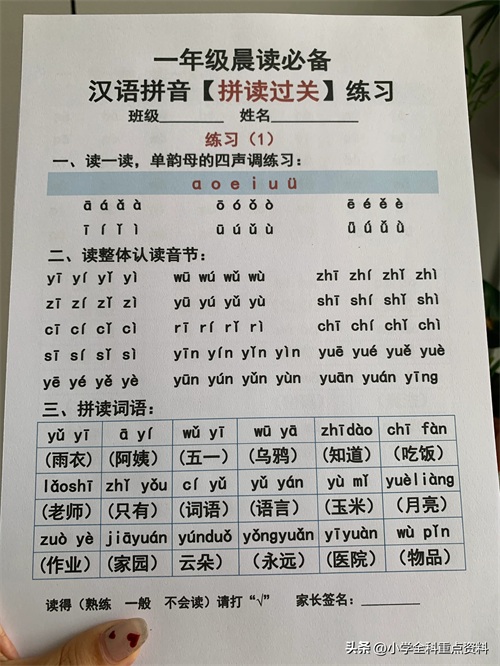 一年级晨读必备
汉语拼音【拼读过关】练习
班级________ 姓名__________
练习（1）
一、读一读，单韵母的四声调练习：
ɑ o e i u ü
ā á ǎ à ō ó ǒ ò ē é ě è
ī í ǐ ì ū ú ǔ ù ǖ ǘ ǚ ǜ
二、读整体认读音节：
yī yí yǐ yì wū wú wǔ wù zhī zhí zhǐ zhì
zī zí zǐ zì yū yú yǔ yù shī shí shǐ shì
cī cí cǐ cì rī rí rǐ rì chī chí chǐ chì
sī sí sǐ sì yīn yín yǐn yìn yuē yué yuě yuè
yē yé yě yè yūn yún yǔn yùn yuān yuán yīng
三、拼读词语：
yǔ yī ā yí wǔ yī wū yā zhīdào chī fàn
（雨衣） （阿姨） （五一） （乌鸦） （知道） （吃饭）
lǎoshī zhǐ yǒu cí yǔ yǔ yán yù mǐ yuèliàng
（老师） （只有） （词语） （语言） （玉米） （月亮）
zuò yè jiāyuán yúnduǒ yǒngyuǎn yīyuàn wù pǐn
（作业） （家园） 云朵） （永远） （医院） （物品）
读得（熟练 一般 不会读）请打“√” 家长签名：________
头条 @小学全科重点资料